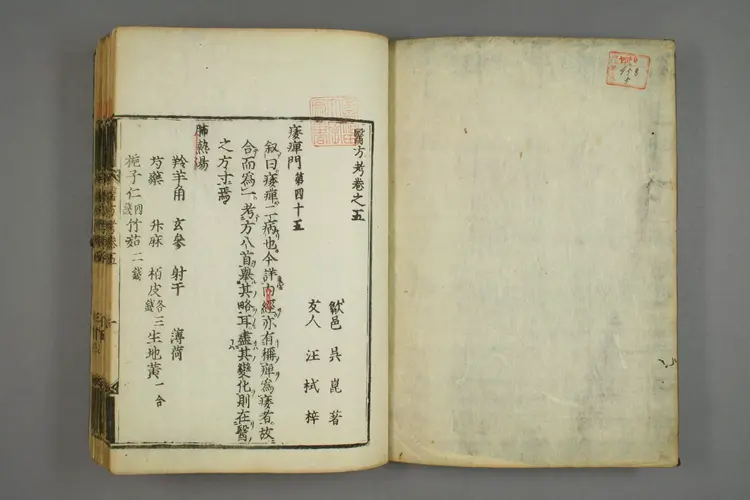 醫方考卷之五
歙邑 吳崑 著
友人 汪栻 梓
痿痺門 第四十五
叙曰痿痺二病也今詳內經亦有稱痺為痿者故
合而為一考方八首舉其略耳盡其變化則在醫
之方寸焉
肺熱湯
羚羊角 玄參 射干 薄荷
芍藥 升麻 栢皮各三錢 生地黃一合
梔子仁四錢 竹茹二錢
醫方考卷五